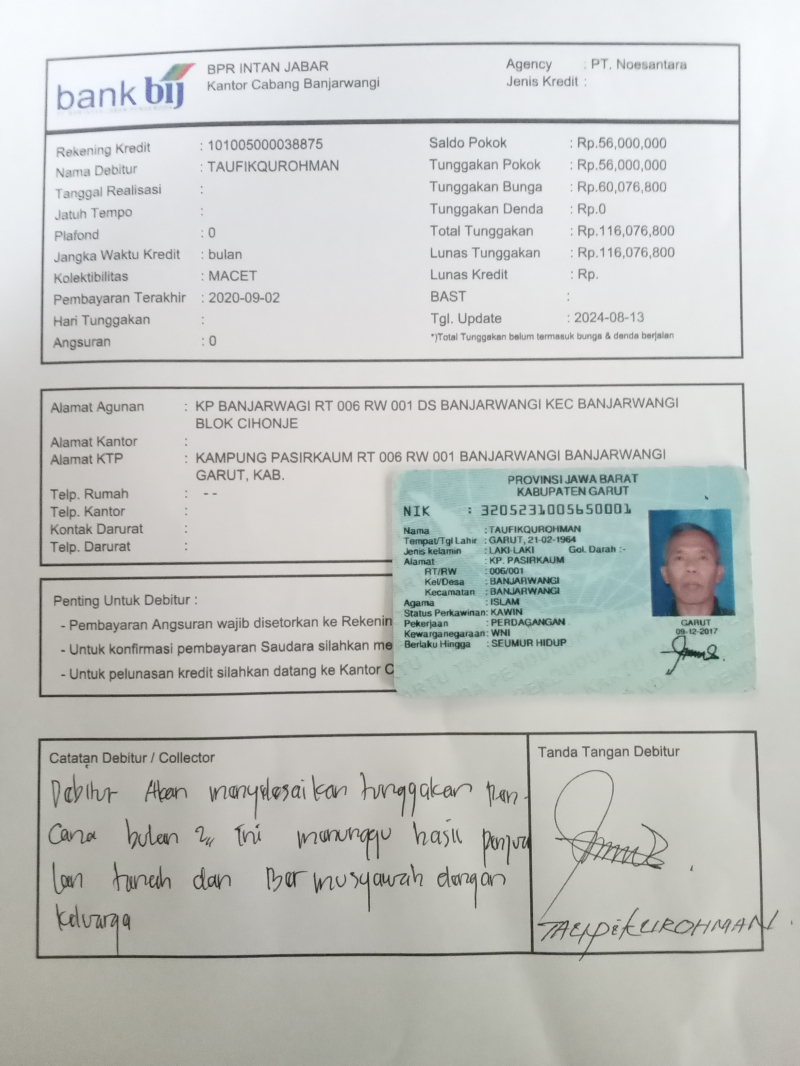 bank bij
BPR INTAN JABAR
Kantor Cabang Banjarwangi
Agency : PT. Noesantara
Jenis Kredit :
Rekening Kredit : 101005000038875
Nama Debitur : TAUFIKQUROHMAN
Tanggal Realisasi :
Jatuh Tempo :
Plafond : 0
Jangka Waktu Kredit : bulan
Kolektibilitas : MACET
Pembayaran Terakhir : 2020-09-02
Hari Tunggakan :
Angsuran : 0
Saldo Pokok : Rp.56,000,000
Tunggakan Pokok : Rp.56,000,000
Tunggakan Bunga : Rp.60,076,800
Tunggakan Denda : Rp.0
Total Tunggakan : Rp.116,076,800
Lunas Tunggakan : Rp.116,076,800
Lunas Kredit : Rp.
BAST :
Tgl. Update : 2024-08-13
*)Total Tunggakan belum termasuk bunga & denda berjalan
Alamat Agunan : KP BANJARWAGI RT 006 RW 001 DS BANJARWANGI KEC BANJARWANGI
BLOK CIHONJE
Alamat Kantor :
Alamat KTP : KAMPUNG PASIRKAUM RT 006 RW 001 BANJARWANGI BANJARWANGI
GARUT, KAB.
Telp. Rumah : - -
Telp. Kantor :
Kontak Darurat :
Telp. Darurat :
PROVINSI JAWA BARAT
KABUPATEN GARUT
NIK : 3205231005650001
Nama : TAUFIKQUROHMAN
Tempat/Tgl Lahir : GARUT, 21-02-1964
Jenis kelamin : LAKI-LAKI Gol. Darah :-
Alamat : KP. PASIRKAUM
RT/RW : 006/001
Kel/Desa : BANJARWANGI
Kecamatan : BANJARWANGI
Agama : ISLAM
Status Perkawinan: KAWIN
Pekerjaan : PERDAGANGAN
Kewarganegaraan: WNI
Berlaku Hingga : SEUMUR HIDUP
GARUT
09-12-2017
Penting Untuk Debitur :
- Pembayaran Angsuran wajib disetorkan ke Rekenin
- Untuk konfirmasi pembayaran Saudara silahkan me
- Untuk pelunasan kredit silahkan datang ke Kantor C
Catatan Debitur / Collector
Debitur Akan menyelesaikan tunggakan Ren-
cana bulan 2,, ini menunggu hasil penjua
lan tanah dan Bermusyawah dengan
keluarga
Tanda Tangan Debitur
TAUPIKUROHMAN